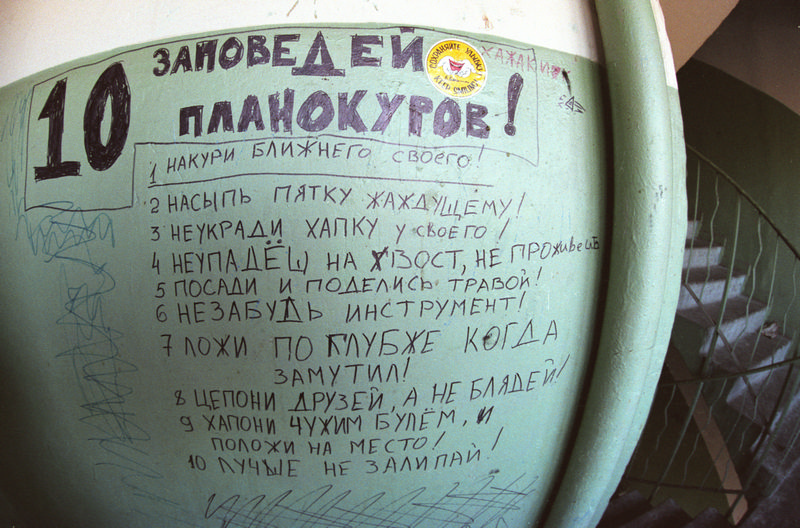 10 ЗАПОВЕДЕЙ
ПЛАНОКУРОВ!
СОХРАНЯЙТЕ УЛЫБКУ
KEEP SMILING
1 НАКУРИ БЛИЖНЕГО СВОЕГО!
2 НАСЫПЬ ПЯТКУ ЖАЖДУЩЕМУ!
3 НЕУКРАДИ ХАПКУ У СВОЕГО!
4 НЕУПАДЁШ НА ХВОСТ, НЕ ПРОЖИВЕШЬ
5 ПОСАДИ И ПОДЕЛИСЬ ТРАВОЙ!
6 НЕЗАБУДЬ ИНСТРУМЕНТ!
7 ЛОЖИ ПО ГЛУБЖЕ КОГДА
ЗАМУТИЛ!
8 ЦЕПОНИ ДРУЗЕЙ, А НЕ БЛЯДЕЙ!
9 ХАПОНИ ЧУЖИМ БУЛЁМ, И
ПОЛОЖИ НА МЕСТО!
10 ЛУЧЬШЕ НЕ ЗАЛИПАЙ!